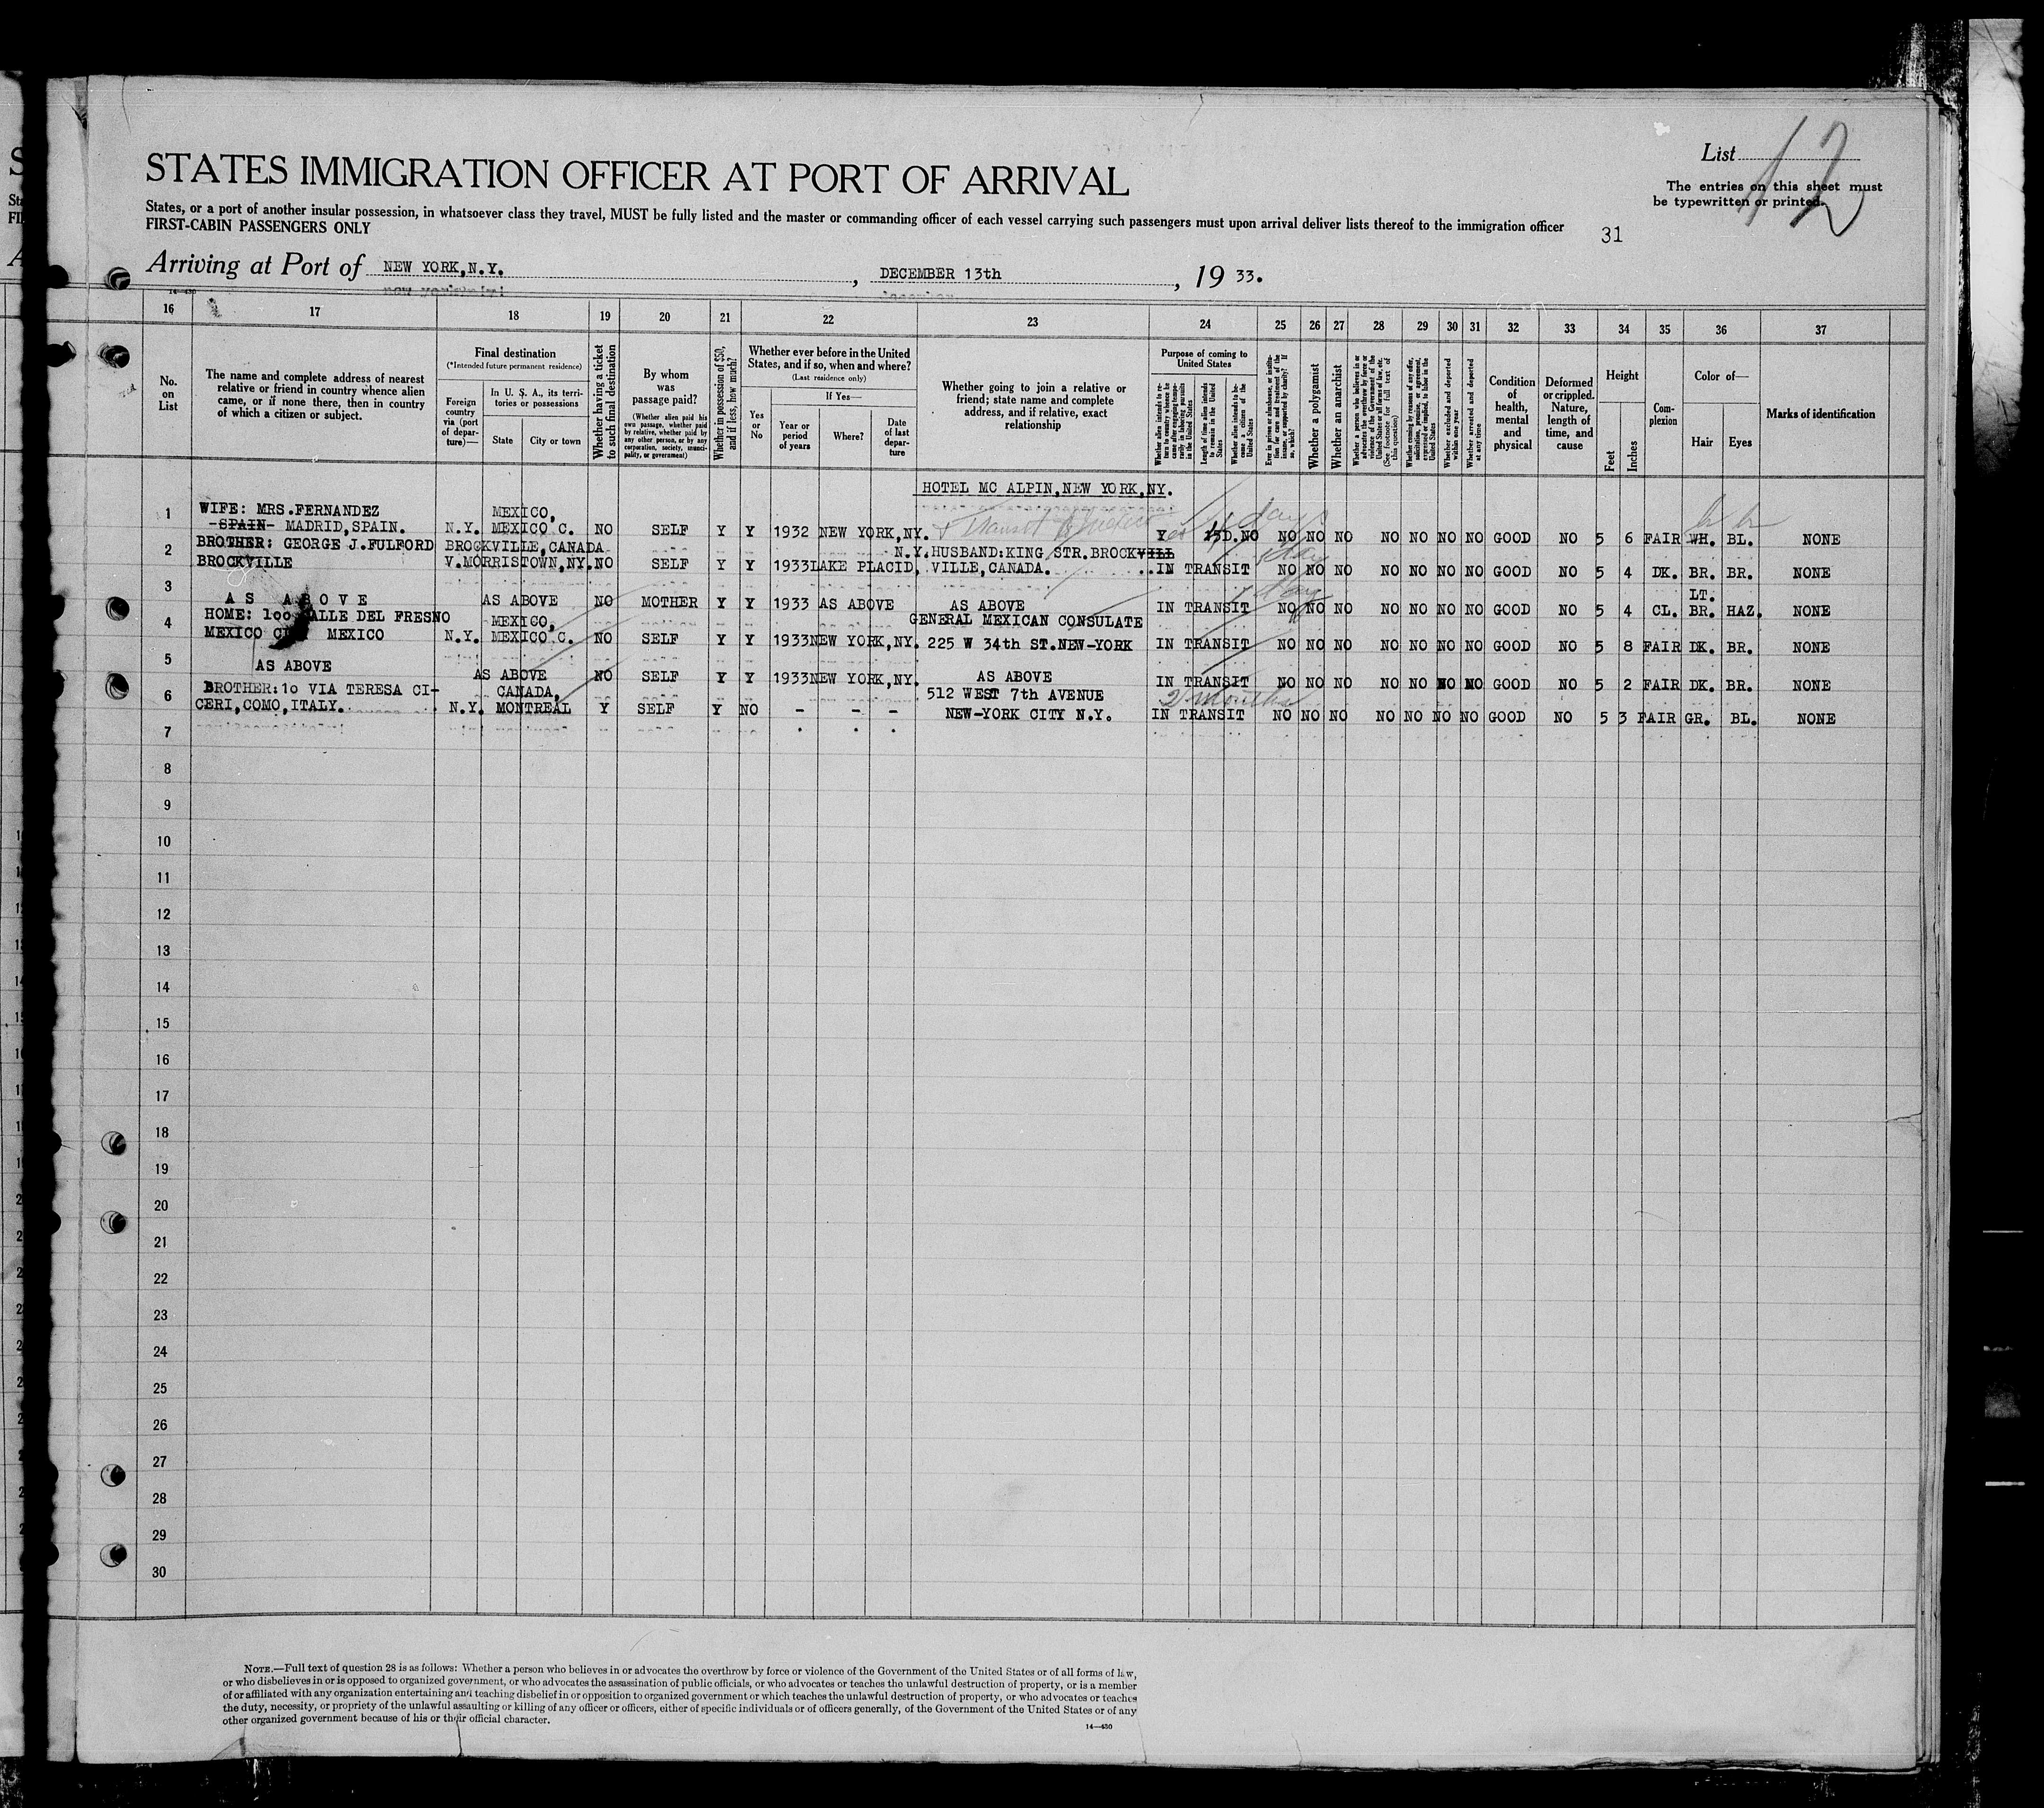 STATES IMMIGRATION OFFICER AT PORT OF ARRIVAL
List 12
The entries on this sheet must
be typewritten or printed.
States, or a port of another insular possession, in whatsoever class they travel, MUST be fully listed and the master or commanding officer of each vessel carrying such passengers must upon arrival deliver lists thereof to the immigration officer
FIRST-CABIN PASSENGERS ONLY
31
Arriving at Port of NEW YORK,N.Y. , DECEMBER 13th , 19 33.
16 17 18 19 20 21 22 23 24 25 26 27 28 29 30 31 32 33 34 35 36 37
No. on List
The name and complete address of nearest relative or friend in country whence alien came, or if none there, then in country of which a citizen or subject.
Final destination
(*Intended future permanent residence)
Foreign country via (port of departure)—
In U. S. A., its territories or possessions
State
City or town
Whether having a ticket to such final destination
By whom was passage paid?
(Whether alien paid his own passage, whether paid by relative, whether paid by any other person, or by any corporation, society, municipality, or government)
Whether in possession of $50, and if less, how much?
Whether ever before in the United States, and if so, when and where?
(Last residence only)
Yes or No
If Yes—
Year or period of years
Where?
Date of last departure
Whether going to join a relative or friend; state name and complete address, and if relative, exact relationship
Purpose of coming to United States
Whether alien intends to return to country whence he came after engaging temporarily in laboring pursuits in the United States
Length of time alien intends to remain in the United States
Whether alien intends to become a citizen of the United States
Ever in prison or almshouse, or institution for care and treatment of the insane, or supported by charity? If so, which?
Whether a polygamist
Whether an anarchist
Whether a person who believes in or advocates the overthrow by force or violence of the Government of the United States or all forms of law, etc. (See footnote for full text of this question)
Whether coming by reasons of any offer, solicitation, promise, or agreement, expressed or implied, to labor in the United States
Whether excluded and deported within one year
Whether arrested and deported at any time
Condition of health, mental and physical
Deformed or crippled. Nature, length of time, and cause
Height
Feet
Inches
Complexion
Color of—
Hair
Eyes
Marks of identification
HOTEL MC ALPIN,NEW YORK,NY.
1 WIFE: MRS.FERNANDEZ MEXICO, days
-SPAIN- MADRID,SPAIN. N.Y. MEXICO C. NO SELF Y Y 1932 NEW YORK,NY. Y 15D.NO NO NO NO NO NO NO NO GOOD NO 5 6 FAIR WH. BL. NONE
2 BROTHER: GEORGE J.FULFORD BROCKVILLE,CANADA N.Y.HUSBAND:KING STR.BROCKVILL
BROCKVILLE V.MORRISTOWN,NY.NO SELF Y Y 1933 LAKE PLACID, VILLE,CANADA. IN TRANSIT NO NO NO NO NO NO NO GOOD NO 5 4 DK. BR. BR. NONE
3 AS ABOVE AS ABOVE NO MOTHER Y Y 1933 AS ABOVE AS ABOVE IN TRANSIT NO NO NO NO NO NO NO GOOD NO 5 4 CL. LT. BR. HAZ. NONE
4 HOME: 100 ALLE DEL FRESNO MEXICO, GENERAL MEXICAN CONSULATE
MEXICO MEXICO N.Y. MEXICO C. NO SELF Y Y 1933 NEW YORK,NY. 225 W 34th ST.NEW-YORK IN TRANSIT NO NO NO NO NO NO NO GOOD NO 5 8 FAIR DK. BR. NONE
5 AS ABOVE AS ABOVE NO SELF Y Y 1933 NEW YORK,NY. AS ABOVE IN TRANSIT NO NO NO NO NO NO NO GOOD NO 5 2 FAIR DK. BR. NONE
6 BROTHER:10 VIA TERESA CI- CANADA, 512 WEST 7th AVENUE 2 months
CERI,COMO,ITALY. N.Y. MONTREAL Y SELF Y NO - - - NEW-YORK CITY N.Y. IN TRANSIT NO NO NO NO NO NO NO GOOD NO 5 3 FAIR GR. BL. NONE
7
8
9
10
11
12
13
14
15
16
17
18
19
20
21
22
23
24
25
26
27
28
29
30
NOTE.—Full text of question 28 is as follows: Whether a person who believes in or advocates the overthrow by force or violence of the Government of the United States or of all forms of law,
or who disbelieves in or is opposed to organized government, or who advocates the assassination of public officials, or who advocates or teaches the unlawful destruction of property, or is a member
of or affiliated with any organization entertaining and teaching disbelief in or opposition to organized government or which teaches the unlawful destruction of property, or who advocates or teaches
the duty, necessity, or propriety of the unlawful assaulting or killing of any officer or officers, either of specific individuals or of officers generally, of the Government of the United States or of any
other organized government because of his or their official character.
14—430